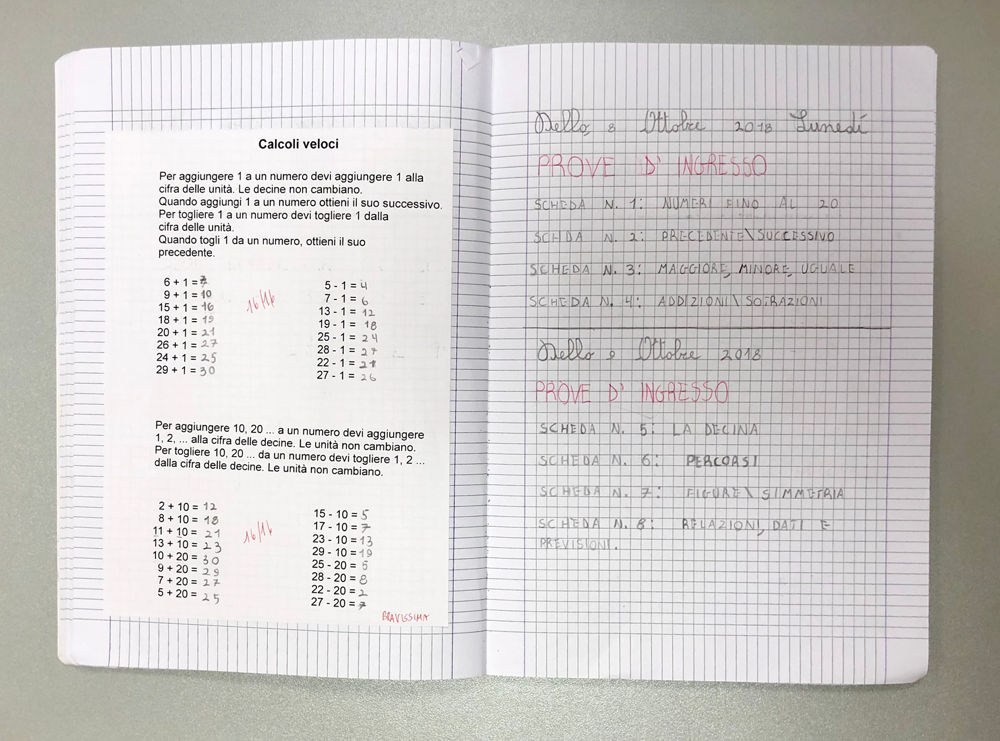 Calcoli veloci
Per aggiungere 1 a un numero devi aggiungere 1 alla
cifra delle unità. Le decine non cambiano.
Quando aggiungi 1 a un numero ottieni il suo successivo.
Per togliere 1 a un numero devi togliere 1 dalla
cifra delle unità.
Quando togli 1 da un numero, ottieni il suo
precedente.
6 + 1 = 7
9 + 1 = 10
15 + 1 = 16
18 + 1 = 19
20 + 1 = 21
26 + 1 = 27
24 + 1 = 25
29 + 1 = 30
16/16
5 - 1 = 4
7 - 1 = 6
13 - 1 = 12
19 - 1 = 18
25 - 1 = 24
28 - 1 = 27
22 - 1 = 21
27 - 1 = 26
Per aggiungere 10, 20 ... a un numero devi aggiungere
1, 2, ... alla cifra delle decine. Le unità non cambiano.
Per togliere 10, 20 ... da un numero devi togliere 1, 2 ...
dalla cifra delle decine. Le unità non cambiano.
2 + 10 = 12
8 + 10 = 18
11 + 10 = 21
13 + 10 = 23
10 + 20 = 30
9 + 20 = 29
7 + 20 = 27
5 + 20 = 25
16/16
15 - 10 = 5
17 - 10 = 7
23 - 10 = 13
29 - 10 = 19
25 - 20 = 5
28 - 20 = 8
22 - 20 = 2
27 - 20 = 7
BRAVISSIMA
Nello 8 Ottobre 2018 Lunedí
PROVE D' INGRESSO
SCHEDA N. 1: NUMERI FINO AL 20
SCHDA N. 2: PRECEDENTE\SUCCESSIVO
SCHEDA N. 3: MAGGIORE, MINORE, UGUALE
SCHEDA N. 4: ADDIZIONI\SOTRAZIONI
Nello 9 Ottobre 2018
PROVE D' INGRESSO
SCHEDA N. 5: LA DECINA
SCHEDA N. 6: PERCORSI
SCHEDA N. 7: FIGURE\SIMMETRIA
SCHEDA N. 8: RELAZIONI, DATI E
PREVISIONI.